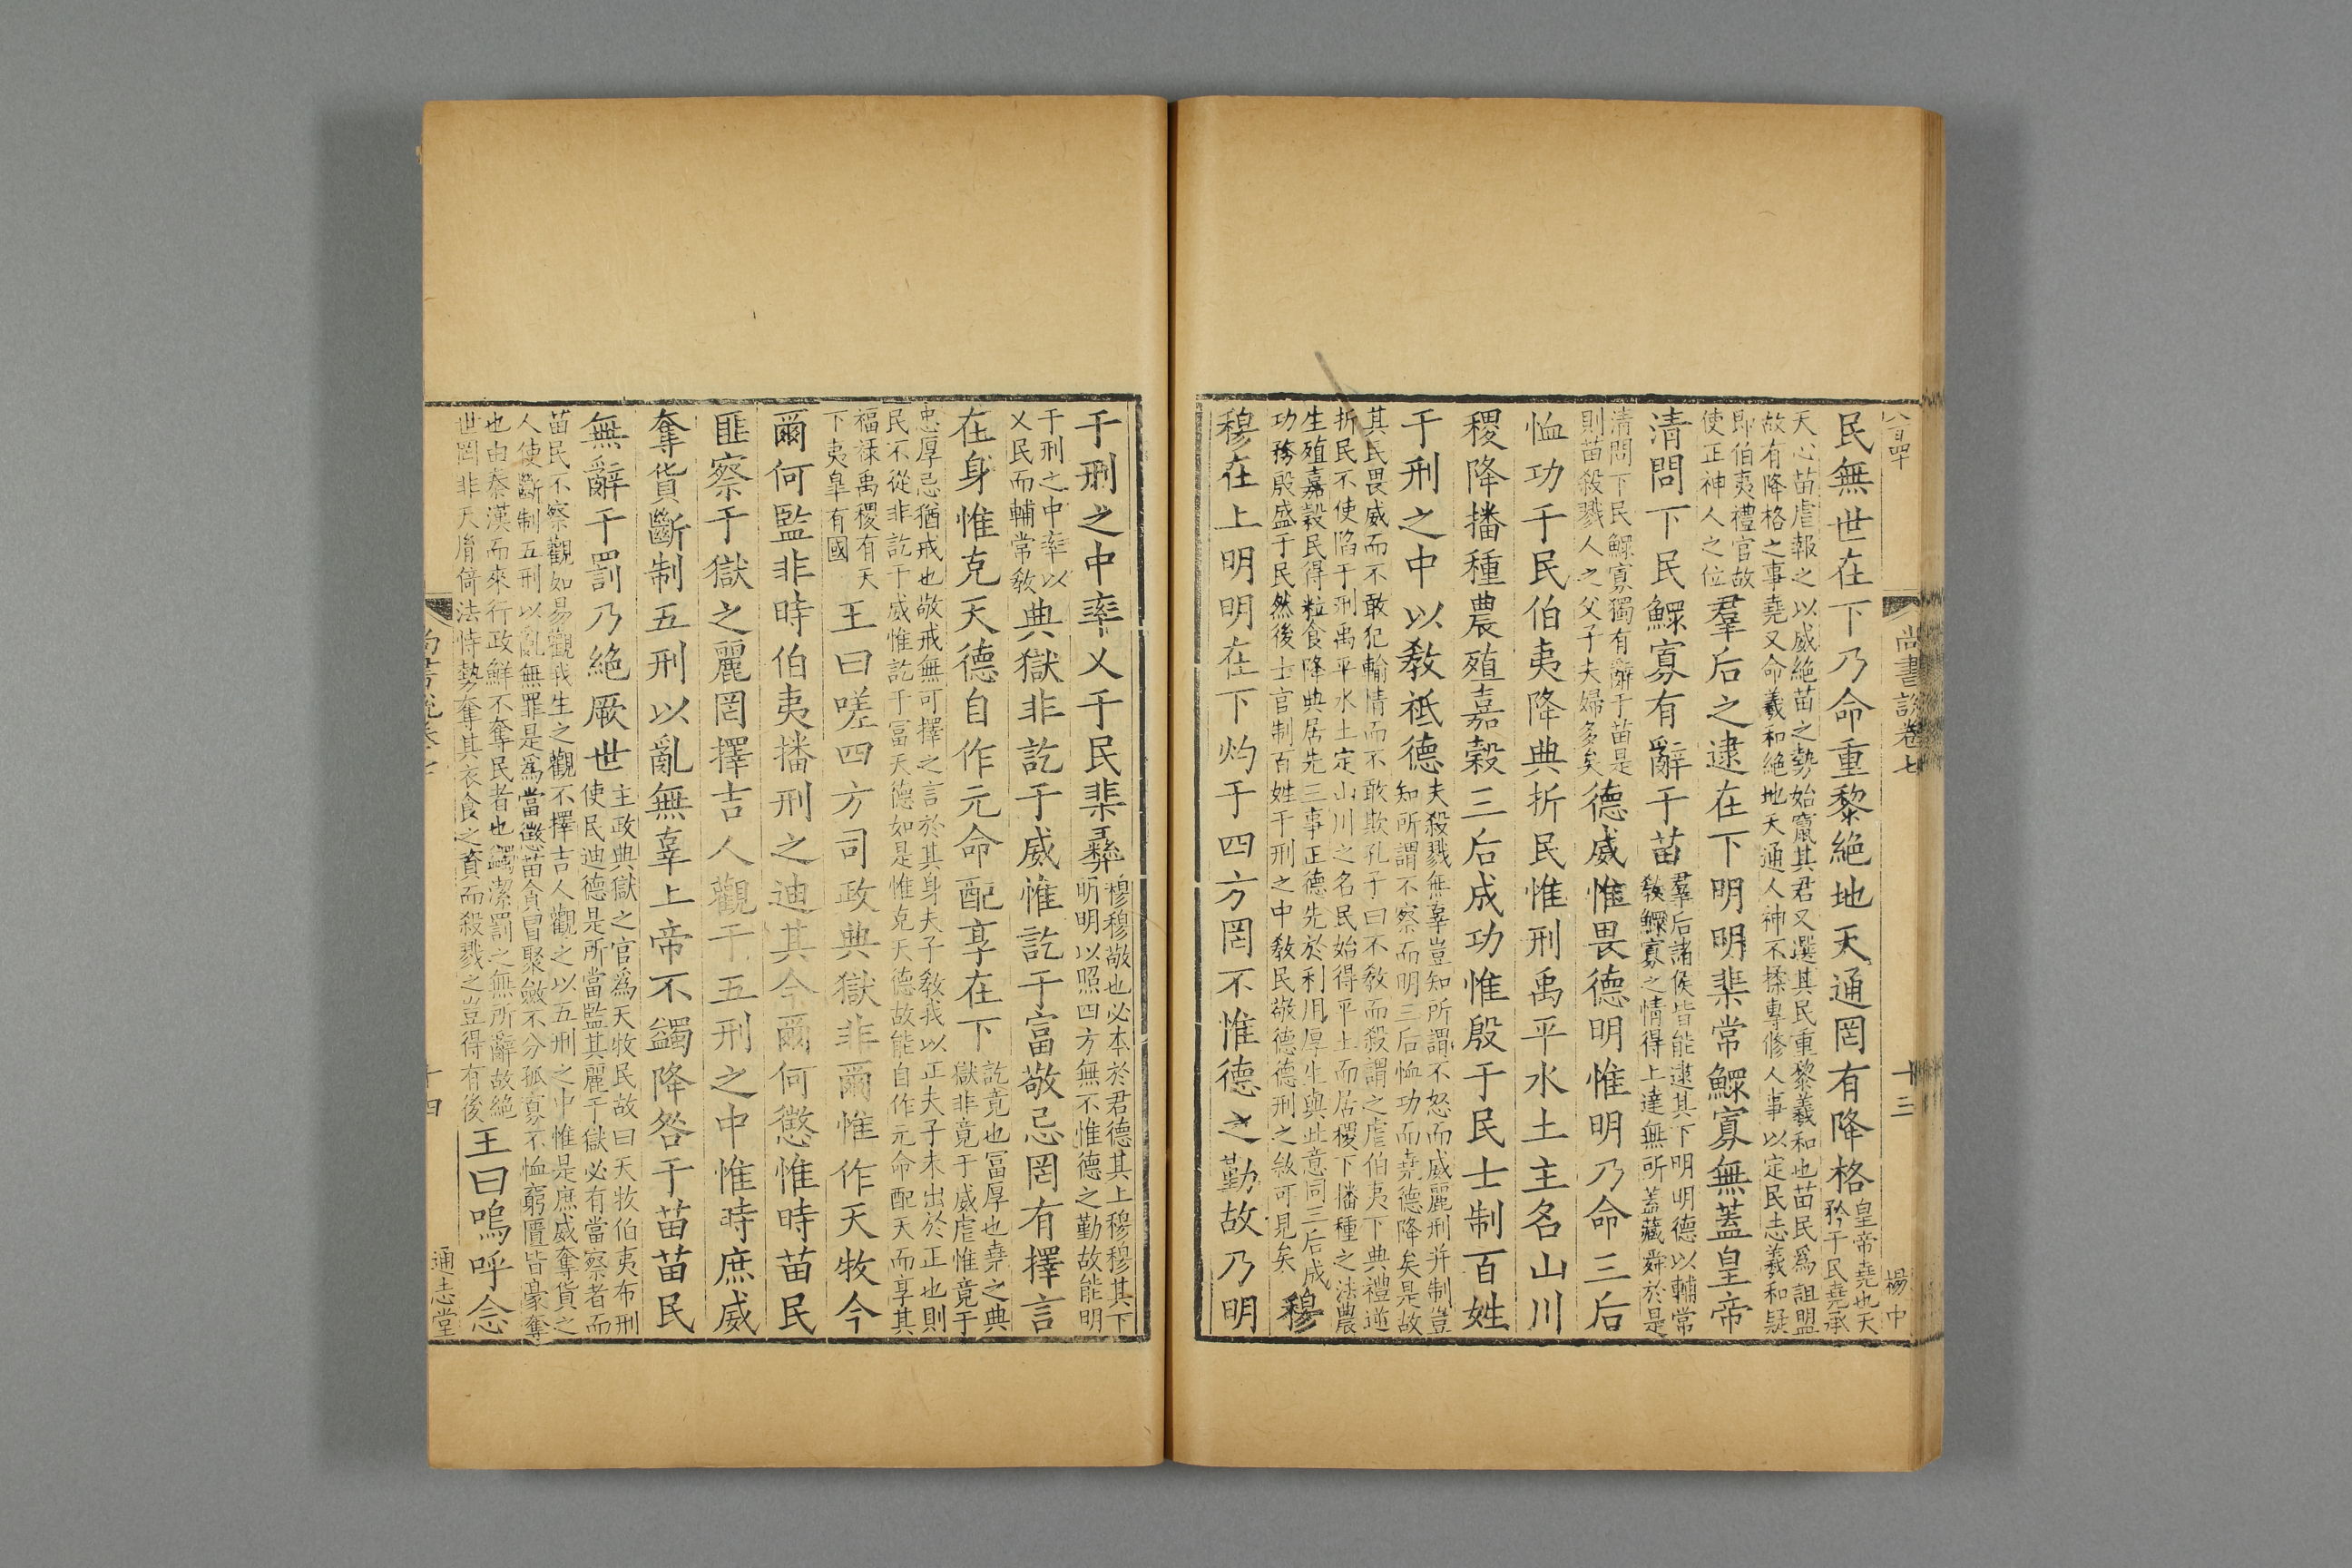 尚書説卷七 十三 楊中
民無世在下乃命重黎絶地天通罔有降格
皇帝堯也天
矜于民堯承
天心苗虐報之以威絶苗之勢始竄其君又選其民重黎羲和也苗民爲詛盟
故有降格之事堯又命羲和絶地天通人神不揉專修人事以定民志羲和疑
即伯夷禮官故
使正神人之位
羣后之逮在下明明棐常鰥寡無蓋皇帝
清問下民鰥寡有辭于苗
羣后諸侯皆能逮其下明明德以輔常
敎鰥寡之情得上達無所蓋藏舜於是
清問下民鰥寡獨有辭于苗是
則苗殺戮人之父子夫婦多矣
德威惟畏德明惟明乃命三后
恤功于民伯夷降典折民惟刑禹平水土主名山川
稷降播種農殖嘉穀三后成功惟殷于民士制百姓
于刑之中以敎祗德
夫殺戮無辜豈知所謂不怒而威麗刑并制豈
知所謂不察而明三后恤功而堯德降矣是故
其民畏威而不敢犯輸情而不敢欺孔子曰不敎而殺謂之虐伯夷下典禮逆
折民不使陷于刑禹平水土定山川之名民始得平土而居稷下播種之法農
生殖嘉穀民得粒食降典居先三事正德先於利用厚生與此意同三后成
功務殷盛于民然後士官制百姓于刑之中敎民敬德德刑之敘可見矣
穆
穆在上明明在下灼于四方罔不惟德之勤故乃明
于刑之中率乂于民棐彛
穆穆敬也必本於君德其上穆穆其下
明明以照四方無不惟德之勤故能明
于刑之中率以
乂民而輔常敎
典獄非訖于威惟訖于富敬忌罔有擇言
在身惟克天德自作元命配享在下
訖竟也富厚也堯之典
獄非竟于威虐惟竟于
忠厚忌猶戒也敬戒無可擇之言於其身夫子敎我以正夫子未出於正也則
民不從非訖于威惟訖于富天德如是惟克天德故能自作元命配天而享其
福祿禹稷有天
下夷臯有國
王曰嗟四方司政典獄非爾惟作天牧今
爾何監非時伯夷播刑之迪其今爾何懲惟時苗民
匪察于獄之麗罔擇吉人觀于五刑之中惟時庶威
奪貨斷制五刑以亂無辜上帝不蠲降咎于苗苗民
無辭于罰乃絶厥世
主政典獄之官爲天牧民故曰天牧伯夷布刑
使民迪德是所當監其麗于獄必有當察者而
苗民不察觀如易觀我生之觀不擇吉人觀之以五刑之中惟是庶威奪貨之
人使斷制五刑以亂無罪是爲當懲苗貪冒聚斂不分孤寡不恤窮匱皆豪奪
也由秦漢而來行政鮮不奪民者也蠲潔罰之無所辭故絶
世罔非天胤倚法恃勢奪其衣食之資而殺戮之豈得有後
王曰嗚呼念
尚書説卷七 十四 通志堂